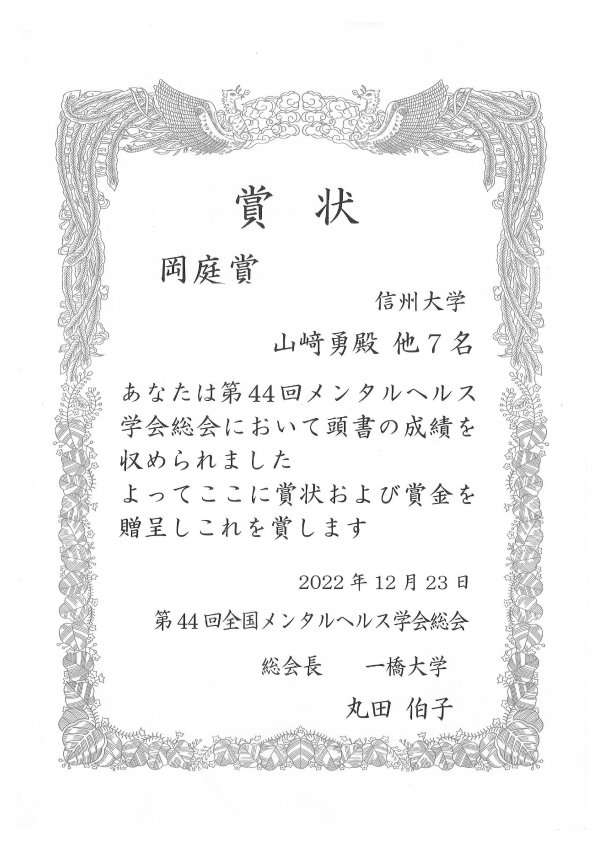 賞状
岡庭賞
信州大学
山﨑勇殿 他７名
あなたは第44回メンタルヘルス
学会総会において頭書の成績を
収められました
よってここに賞状および賞金を
贈呈しこれを賞します
2022年12月23日
第44回全国メンタルヘルス学会総会
総会長 一橋大学
丸田 伯子